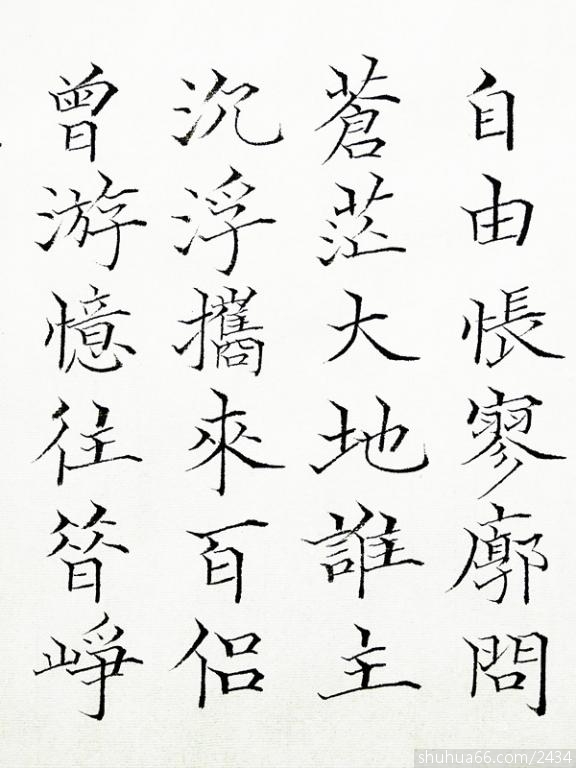 自由悵寥廓問
蒼茫大地誰主
沉浮攜來百侶
曾游憶往昝崢
shuhua66.com/2434